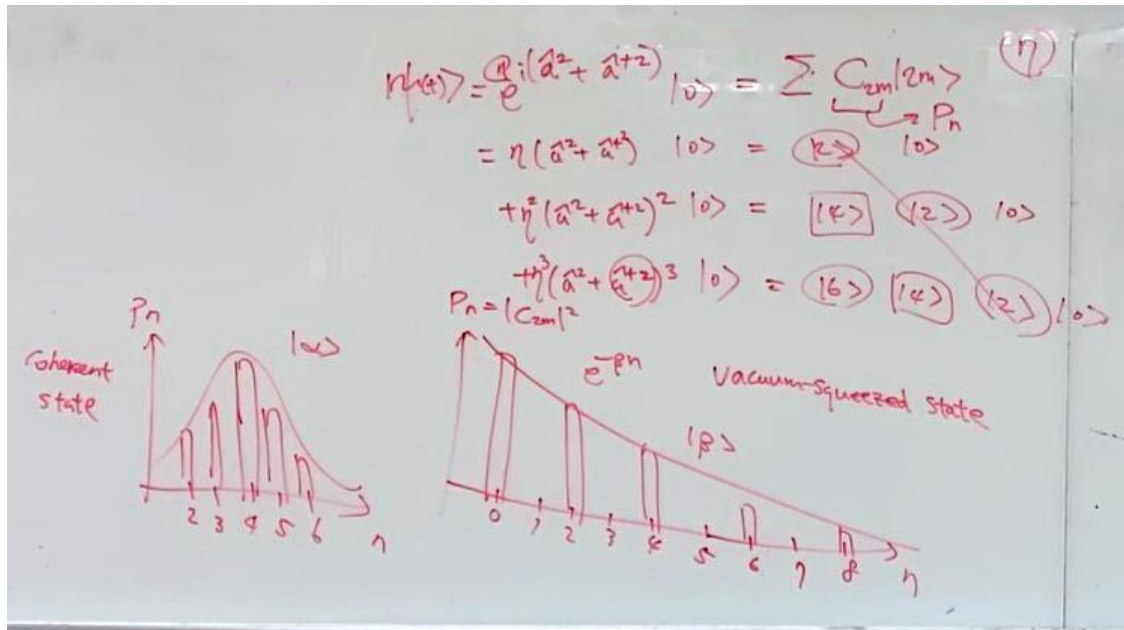 |ψ(t)> = e^{ηi(â²+â^{+2})} |0> = Σ C_{2m}|2m>
(η)
P_n
= η(â²+â^{+2}) |0> = |2> |0>
+η²(â²+â^{+2})² |0> = |4> |2> |0>
+η³(â²+â^{+2})³ |0> = |6> |4> |2> |0>
Coherent
state
P_n
|α>
2 3 4 5 6 n
P_n = |C_{2m}|²
e^{-βn}
Vacuum-squeezed state
|β>
0 1 2 3 4 5 6 7 8 n